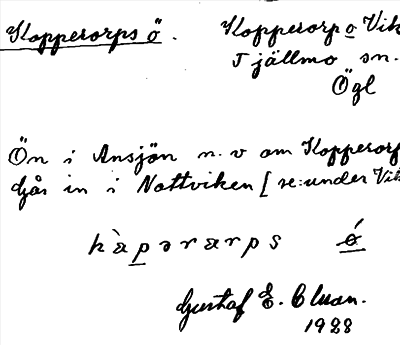 Kopperorps ö. Kopperorp o Vik
Tjällmo sn.
Ögl
Ön i Ansjön n.v om Kopperorp
Går in i Nottviken [se: under Vik
kàpərarps ǿ
Gustaf E. Cluan.
1928